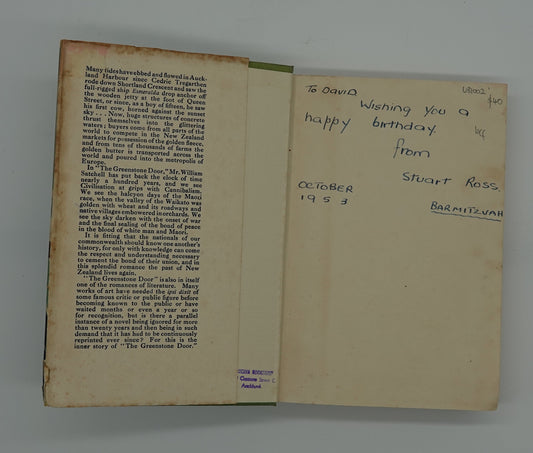 Many tides have ebbed and flowed in Auck-
land Harbour since Cedric Tregarthen
rode down Shortland Crescent and saw the
full-rigged ship Esmeralda drop anchor off
the wooden jetty at the foot of Queen
Street, or since, as a boy of fifteen, he saw
his first cow, horned against the sunset
sky . . . Now, huge structures of concrete
thrust themselves into the glittering
waters; buyers come from all parts of the
world to compete in the New Zealand
markets for possession of the golden fleece,
and from tens of thousands of farms the
golden butter is transported across the
world and poured into the metropolis of
Europe.
In "The Greenstone Door," Mr. William
Satchell has put back the clock of time
nearly a hundred years, and we see
Civilisation at grips with Cannibalism.
We see the halcyon days of the Maori
race, when the valley of the Waikato was
golden with wheat and its roadways and
native villages embowered in orchards. We
see the sky darken with the onset of war
and the final sealing of the bond of peace
in the blood of white man and Maori.
It is fitting that the nationals of our
commonwealth should know one another's
history, for only with knowledge can come
the respect and understanding necessary
to cement the bond of their union, and in
this splendid romance the past of New
Zealand lives again.
"The Greenstone Door" is also in itself
one of the romances of literature. Many
works of art have needed the ipsi dixit of
some famous critic or public figure before
becoming known to the public or have
waited months or even a year or so
for recognition, but is there a parallel
instance of a novel being ignored for more
than twenty years and then being in such
demand that it has had to be continuously
reprinted ever since? For this is the
inner story of "The Greenstone Door."
Auckland.
To DAVID
Wishing you a
happy birthday
from
Stuart Ross.
OCTOBER
1953
BARMITZVAH
$40